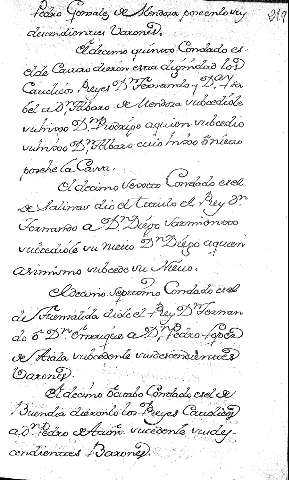 Pedro Gonzalez de Mendoza poseenlo sus
decendientes Varones.
El decimo quinto Condado es
el de dieron esta dignidad los
Reyes Dn Fernando y
a Dn Albaro de Mendoza subcediole
su hijo Dn Rodrigo a quien subcedio
su hijo Dn Albaro cuio hijo o nieto
posehe la Cassa.
El decimo Sexto Condado es el
de Salinas dio el titulo el Rey Dn
Fernando a Dn Diego Sarmiento
subcediole su nieto Dn Diego a quien
asimismo subcedio su Nieto.
El decimo Septimo Condado es el
de diole el Rey Dn Fernan
do o Dn Enrrique a Dn Pedro Lopez
de Aiala subcedenle sus descendientes
Varones.
El decimo octabo Condado es el de
Buendia dieronlo los Reyes Catolicos
a Dn Pedro de Acuña subcedenle sus des
cendientes Barones.